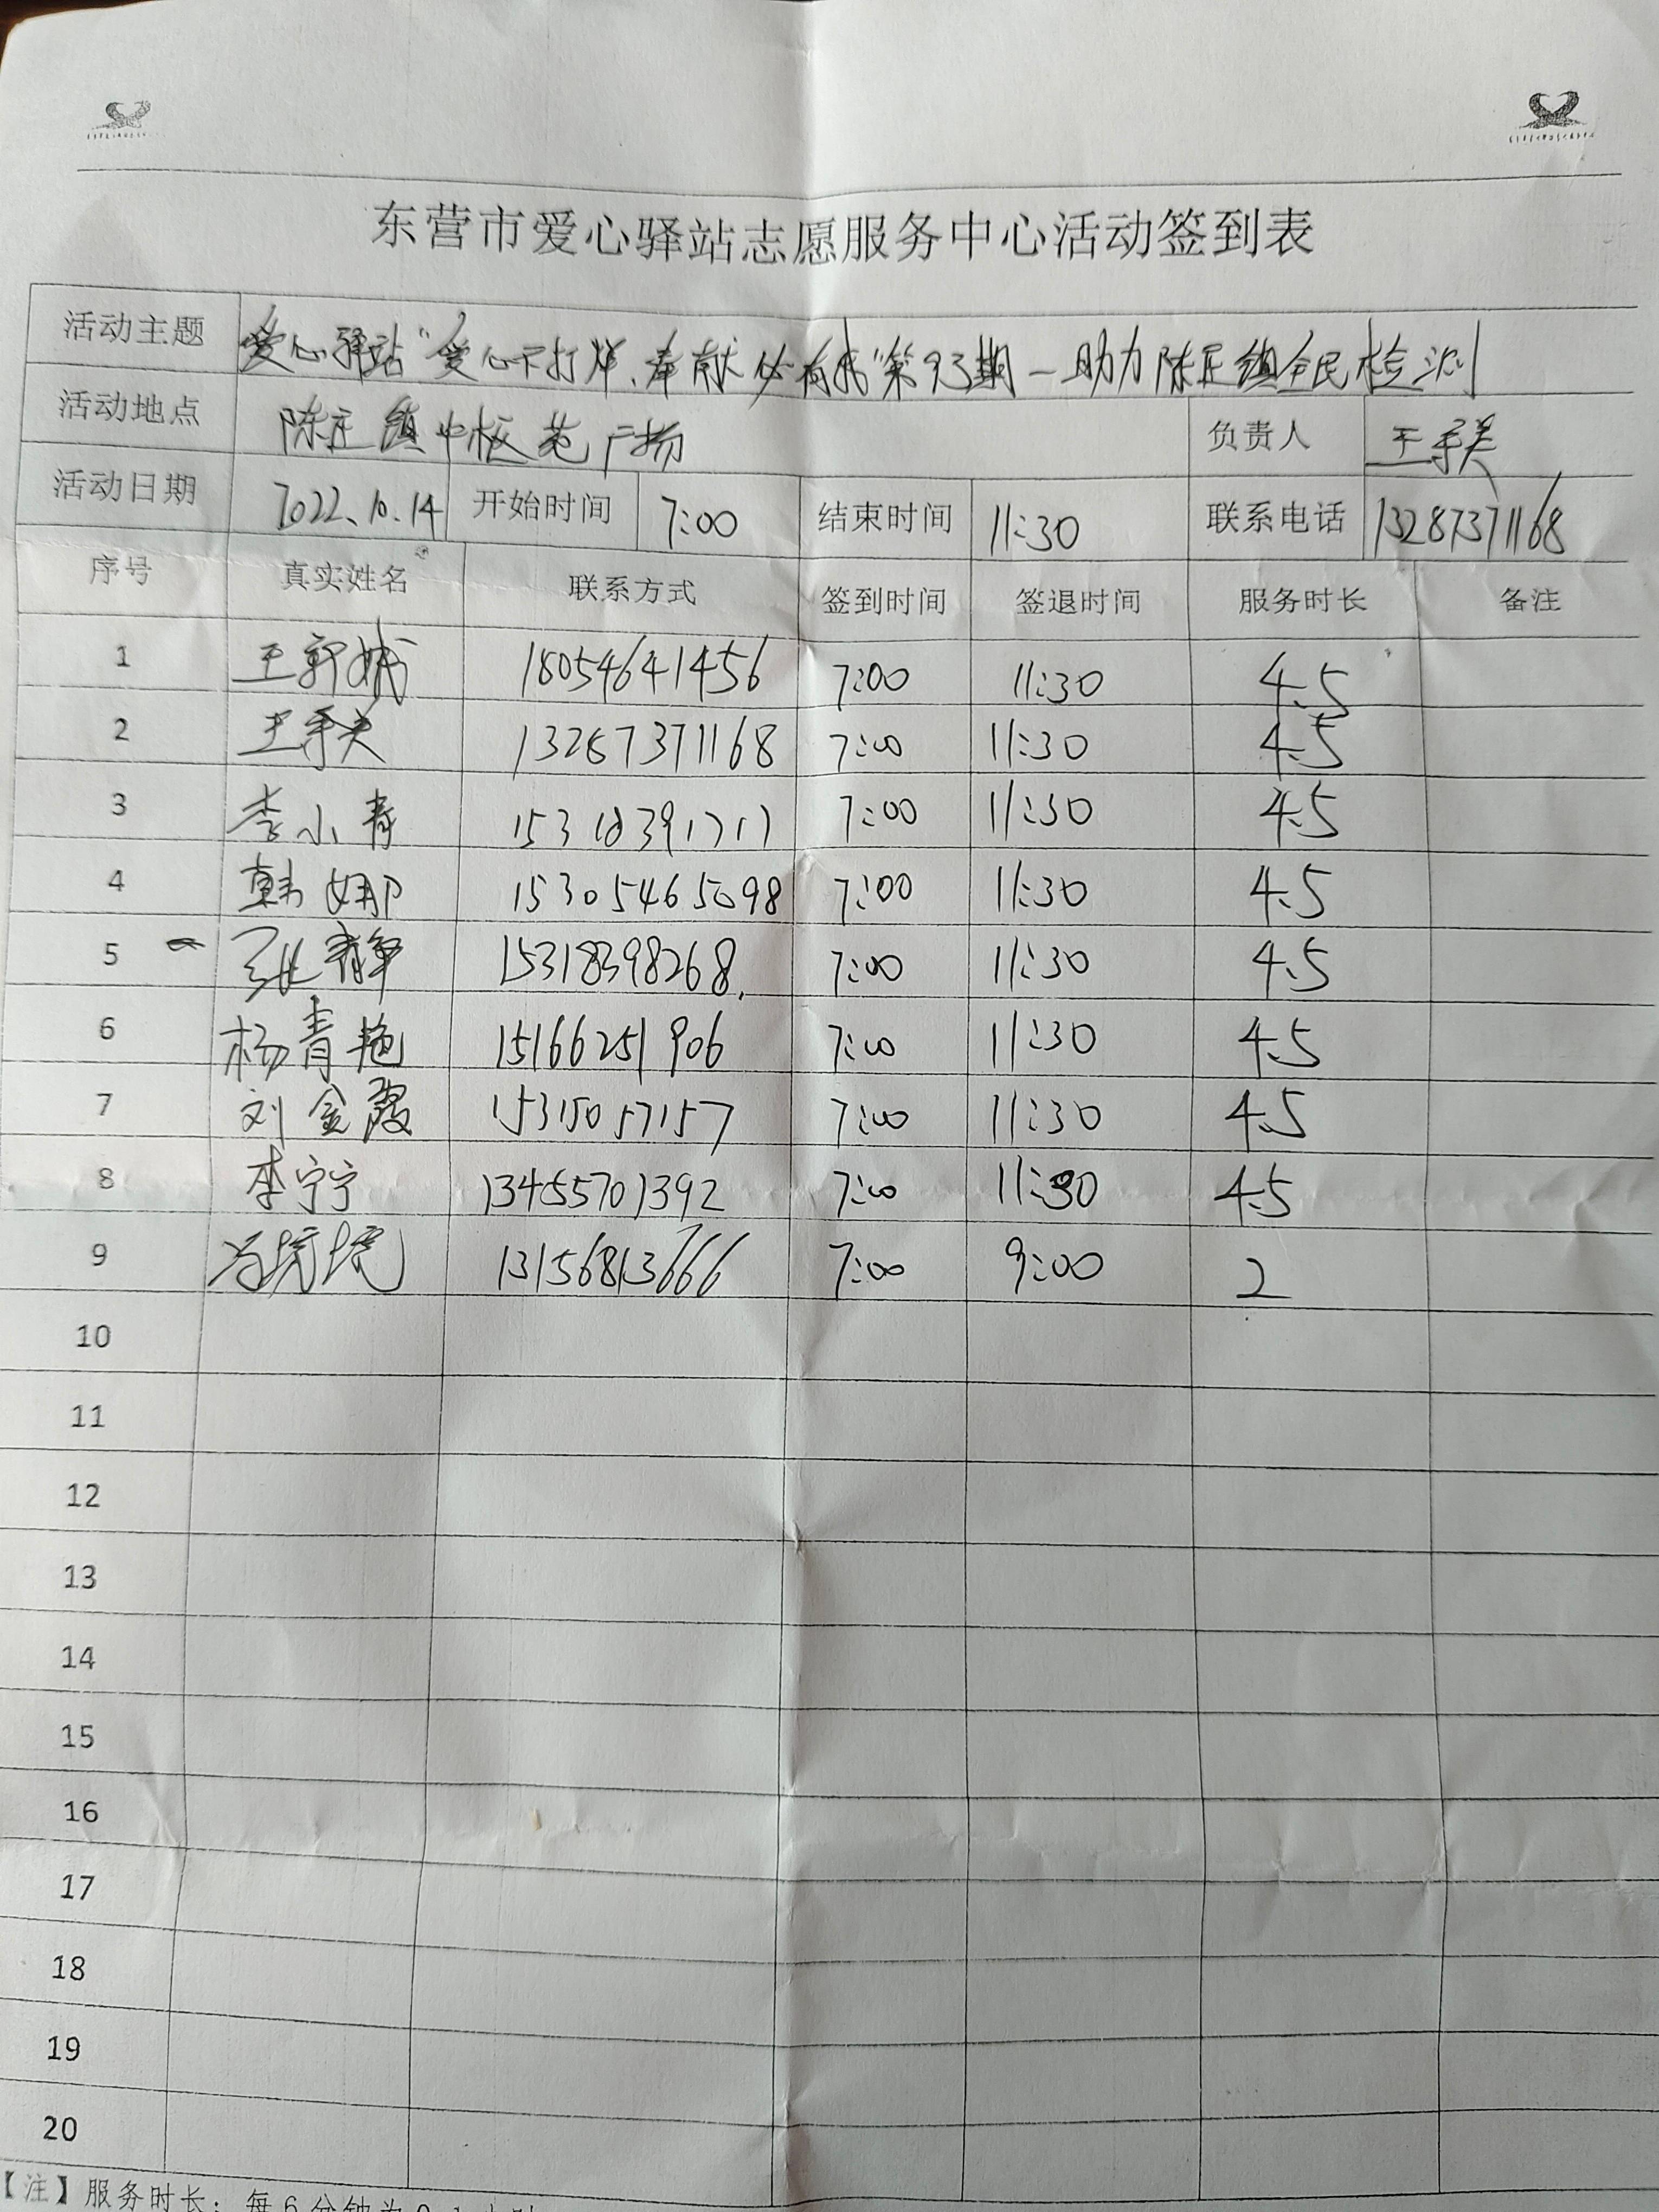 东营市爱心驿站志愿服务中心活动签到表
活动主题 爱心驿站"爱心不打烊、奉献必有我"第93期-助力陈庄镇全民检测
活动地点 陈庄镇中枢苑广场 负责人 王
活动日期 2022.10.14 开始时间 7:00 结束时间 11:30 联系电话 13287371168
序号 真实姓名 联系方式 签到时间 签退时间 服务时长 备注
1 王 18054641456 7:00 11:30 4.5
2 王 13287371168 7:00 11:30 4.5
3 李小青 7:00 11:30 4.5
4 韩娜 15305465098 7:00 11:30 4.5
5 张静 15318398268 7:00 11:30 4.5
6 杨青艳 15166251906 7:00 11:30 4.5
7 刘金霞 15315057157 7:00 11:30 4.5
8 李宁宁 13455701392 7:00 11:30 4.5
9 13156813666 7:00 9:00 2
10
11
12
13
14
15
16
17
18
19
20
【注】服务时长：每6分钟为0.1小时